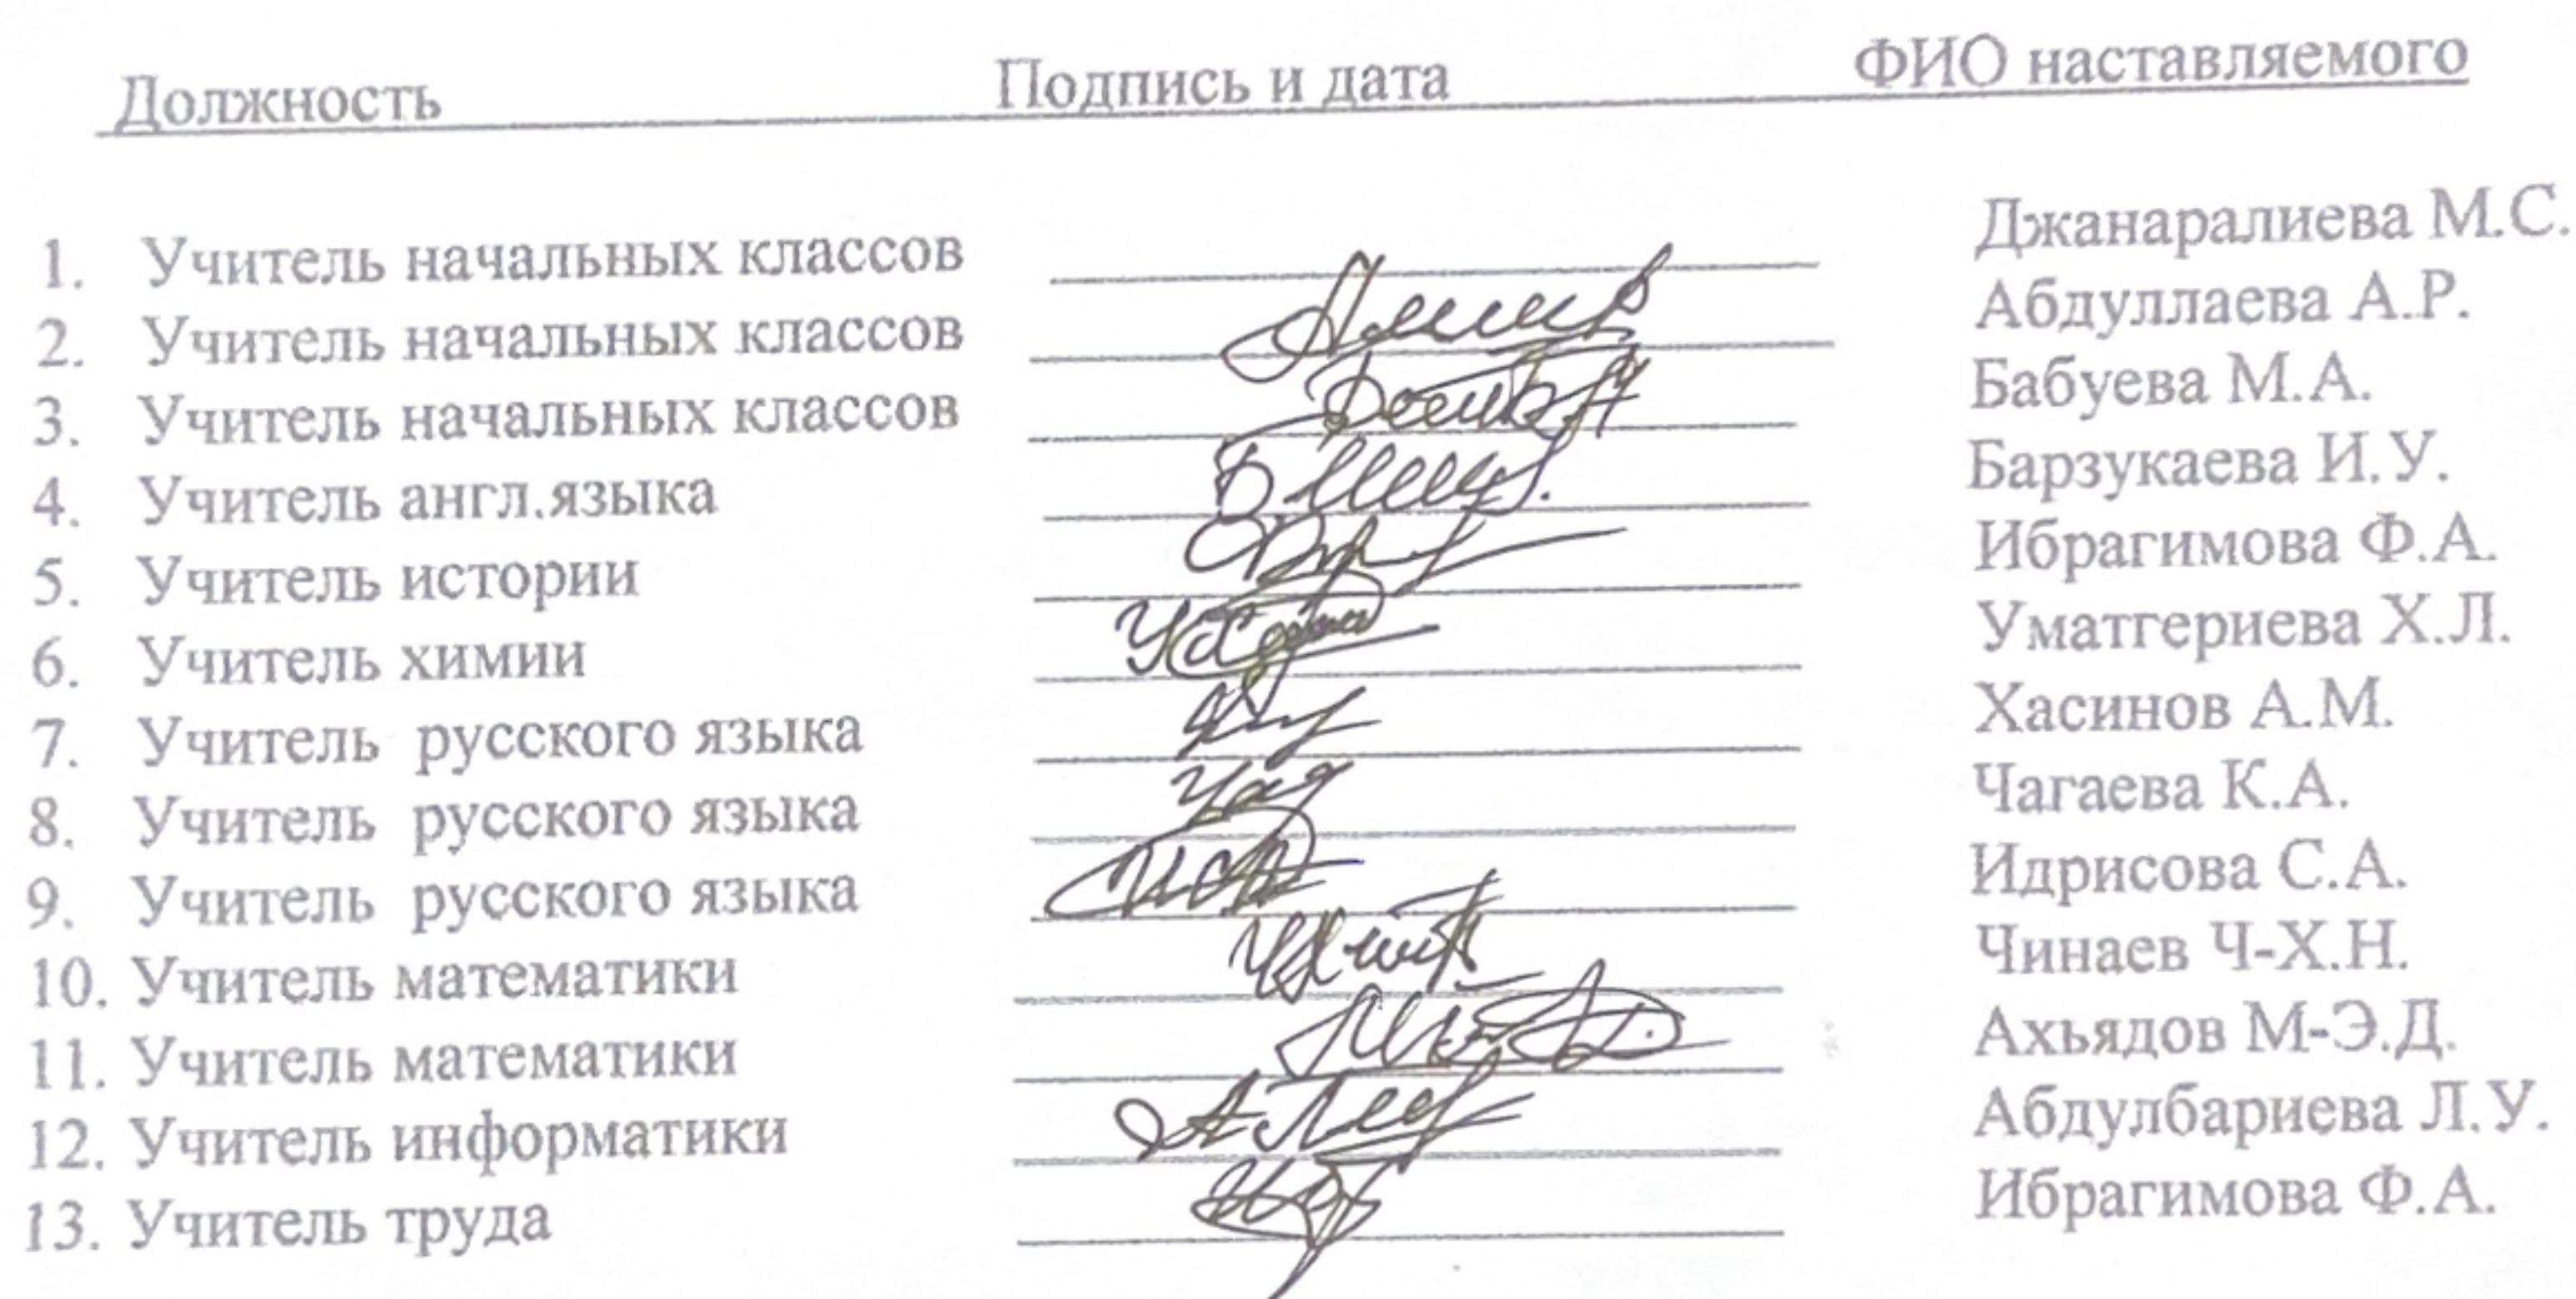 Должность Подпись и дата ФИО наставляемого
1. Учитель начальных классов Джанаралиева М.С.
2. Учитель начальных классов Абдуллаева А.Р.
3. Учитель начальных классов Бабуева М.А.
4. Учитель англ.языка Барзукаева И.У.
5. Учитель истории Ибрагимова Ф.А.
6. Учитель химии Уматгериева Х.Л.
7. Учитель русского языка Хасинов А.М.
8. Учитель русского языка Чагаева К.А.
9. Учитель русского языка Идрисова С.А.
10. Учитель математики Чинаев Ч-Х.Н.
11. Учитель математики Ахьядов М-Э.Д.
12. Учитель информатики Абдулбариева Л.У.
13. Учитель труда Ибрагимова Ф.А.